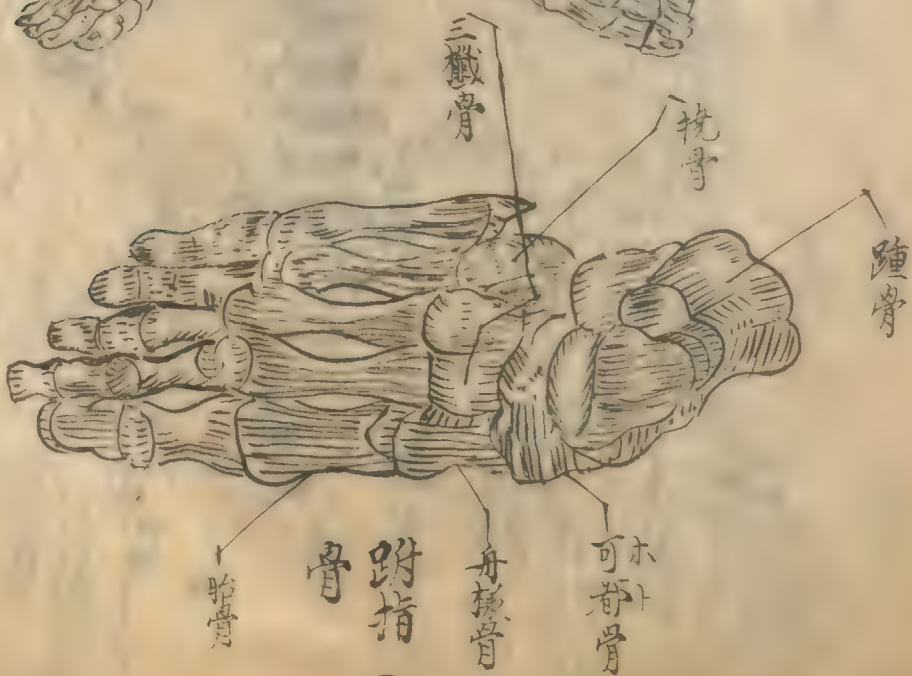 三韱骨
挠骨
踵骨
可都骨
ホト
舟梯骨
跗指
骨
胎骨